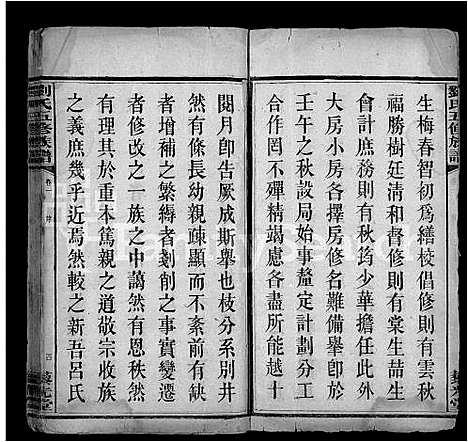 劉氏五修族譜
生梅春智初爲繕校倡修則有雲秋
福勝樹廷清和督修則有棠生喆生
會計庶務則有秋筠少華擔任此外
大房小房各擇房修名難備舉卽於
壬午之秋設局始事釐定計劃分工
合作罔不殫精竭慮各盡所能越十
閱月卽告厥成斯舉也枝分系別井
然有條長幼親疎顯而不紊前有缺
者增補之繁縟者剗削之事實變遷
者修改之一族之中藹然有恩秩然
有文其亦本惇篤親之道敬宗收族
之義庶幾乎近焉然較之新吾呂氏
劉氏五修族譜
卷一
四